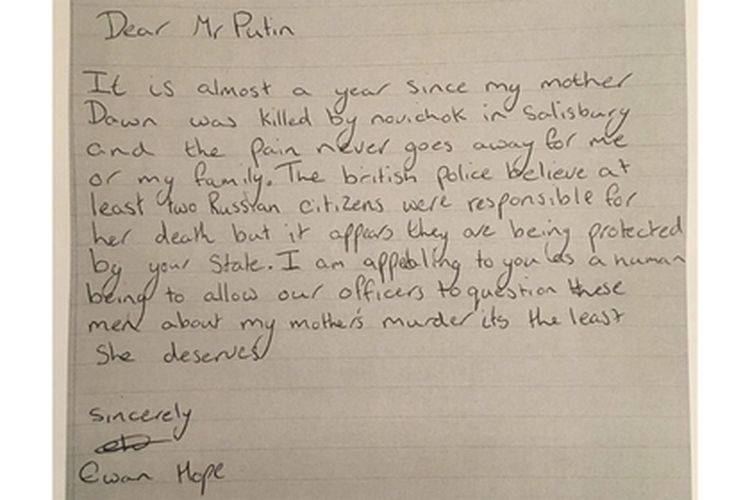 Dear Mr Putin
It is almost a year since my mother
Dawn was killed by novichok in Salisbury
and the pain never goes away for me
or my family. The british police believe at
least two Russian citizens were responsible for
her death but it appears they are being protected
by your State. I am appealing to you as a human
being to allow our officers to question these
men about my mother's murder its the least
She deserves
sincerely
Ewan Hope